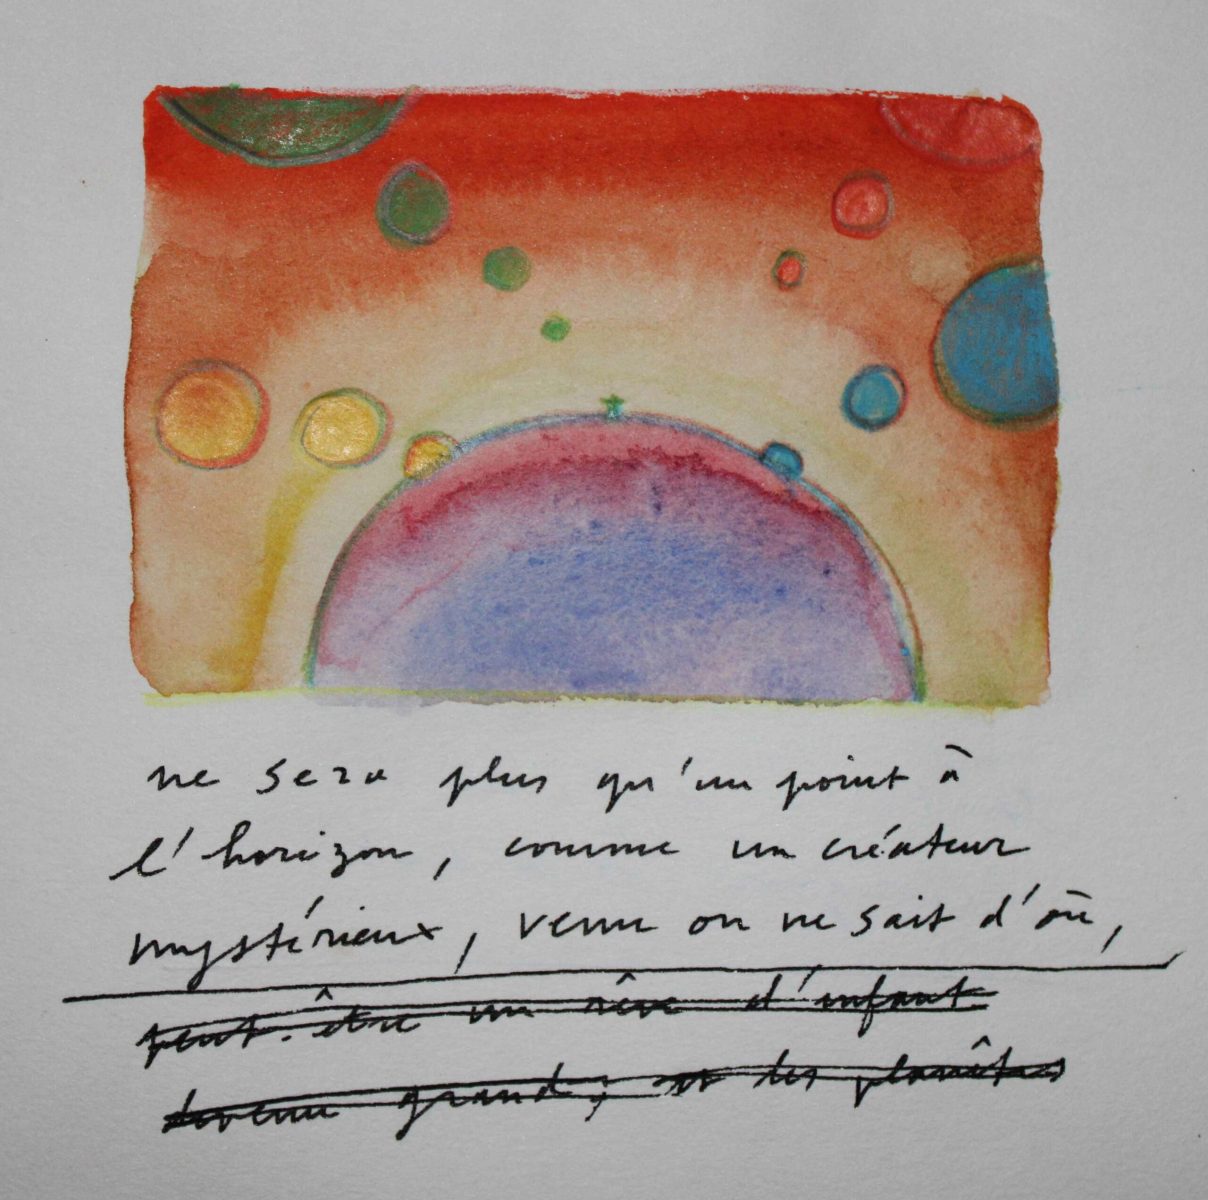 ne sera plus qu'un point à
l'horizon, comme un créateur
mystérieux, venu on ne sait d'où,
peut-être un rêve d'enfant
devenu grand; et les planètes